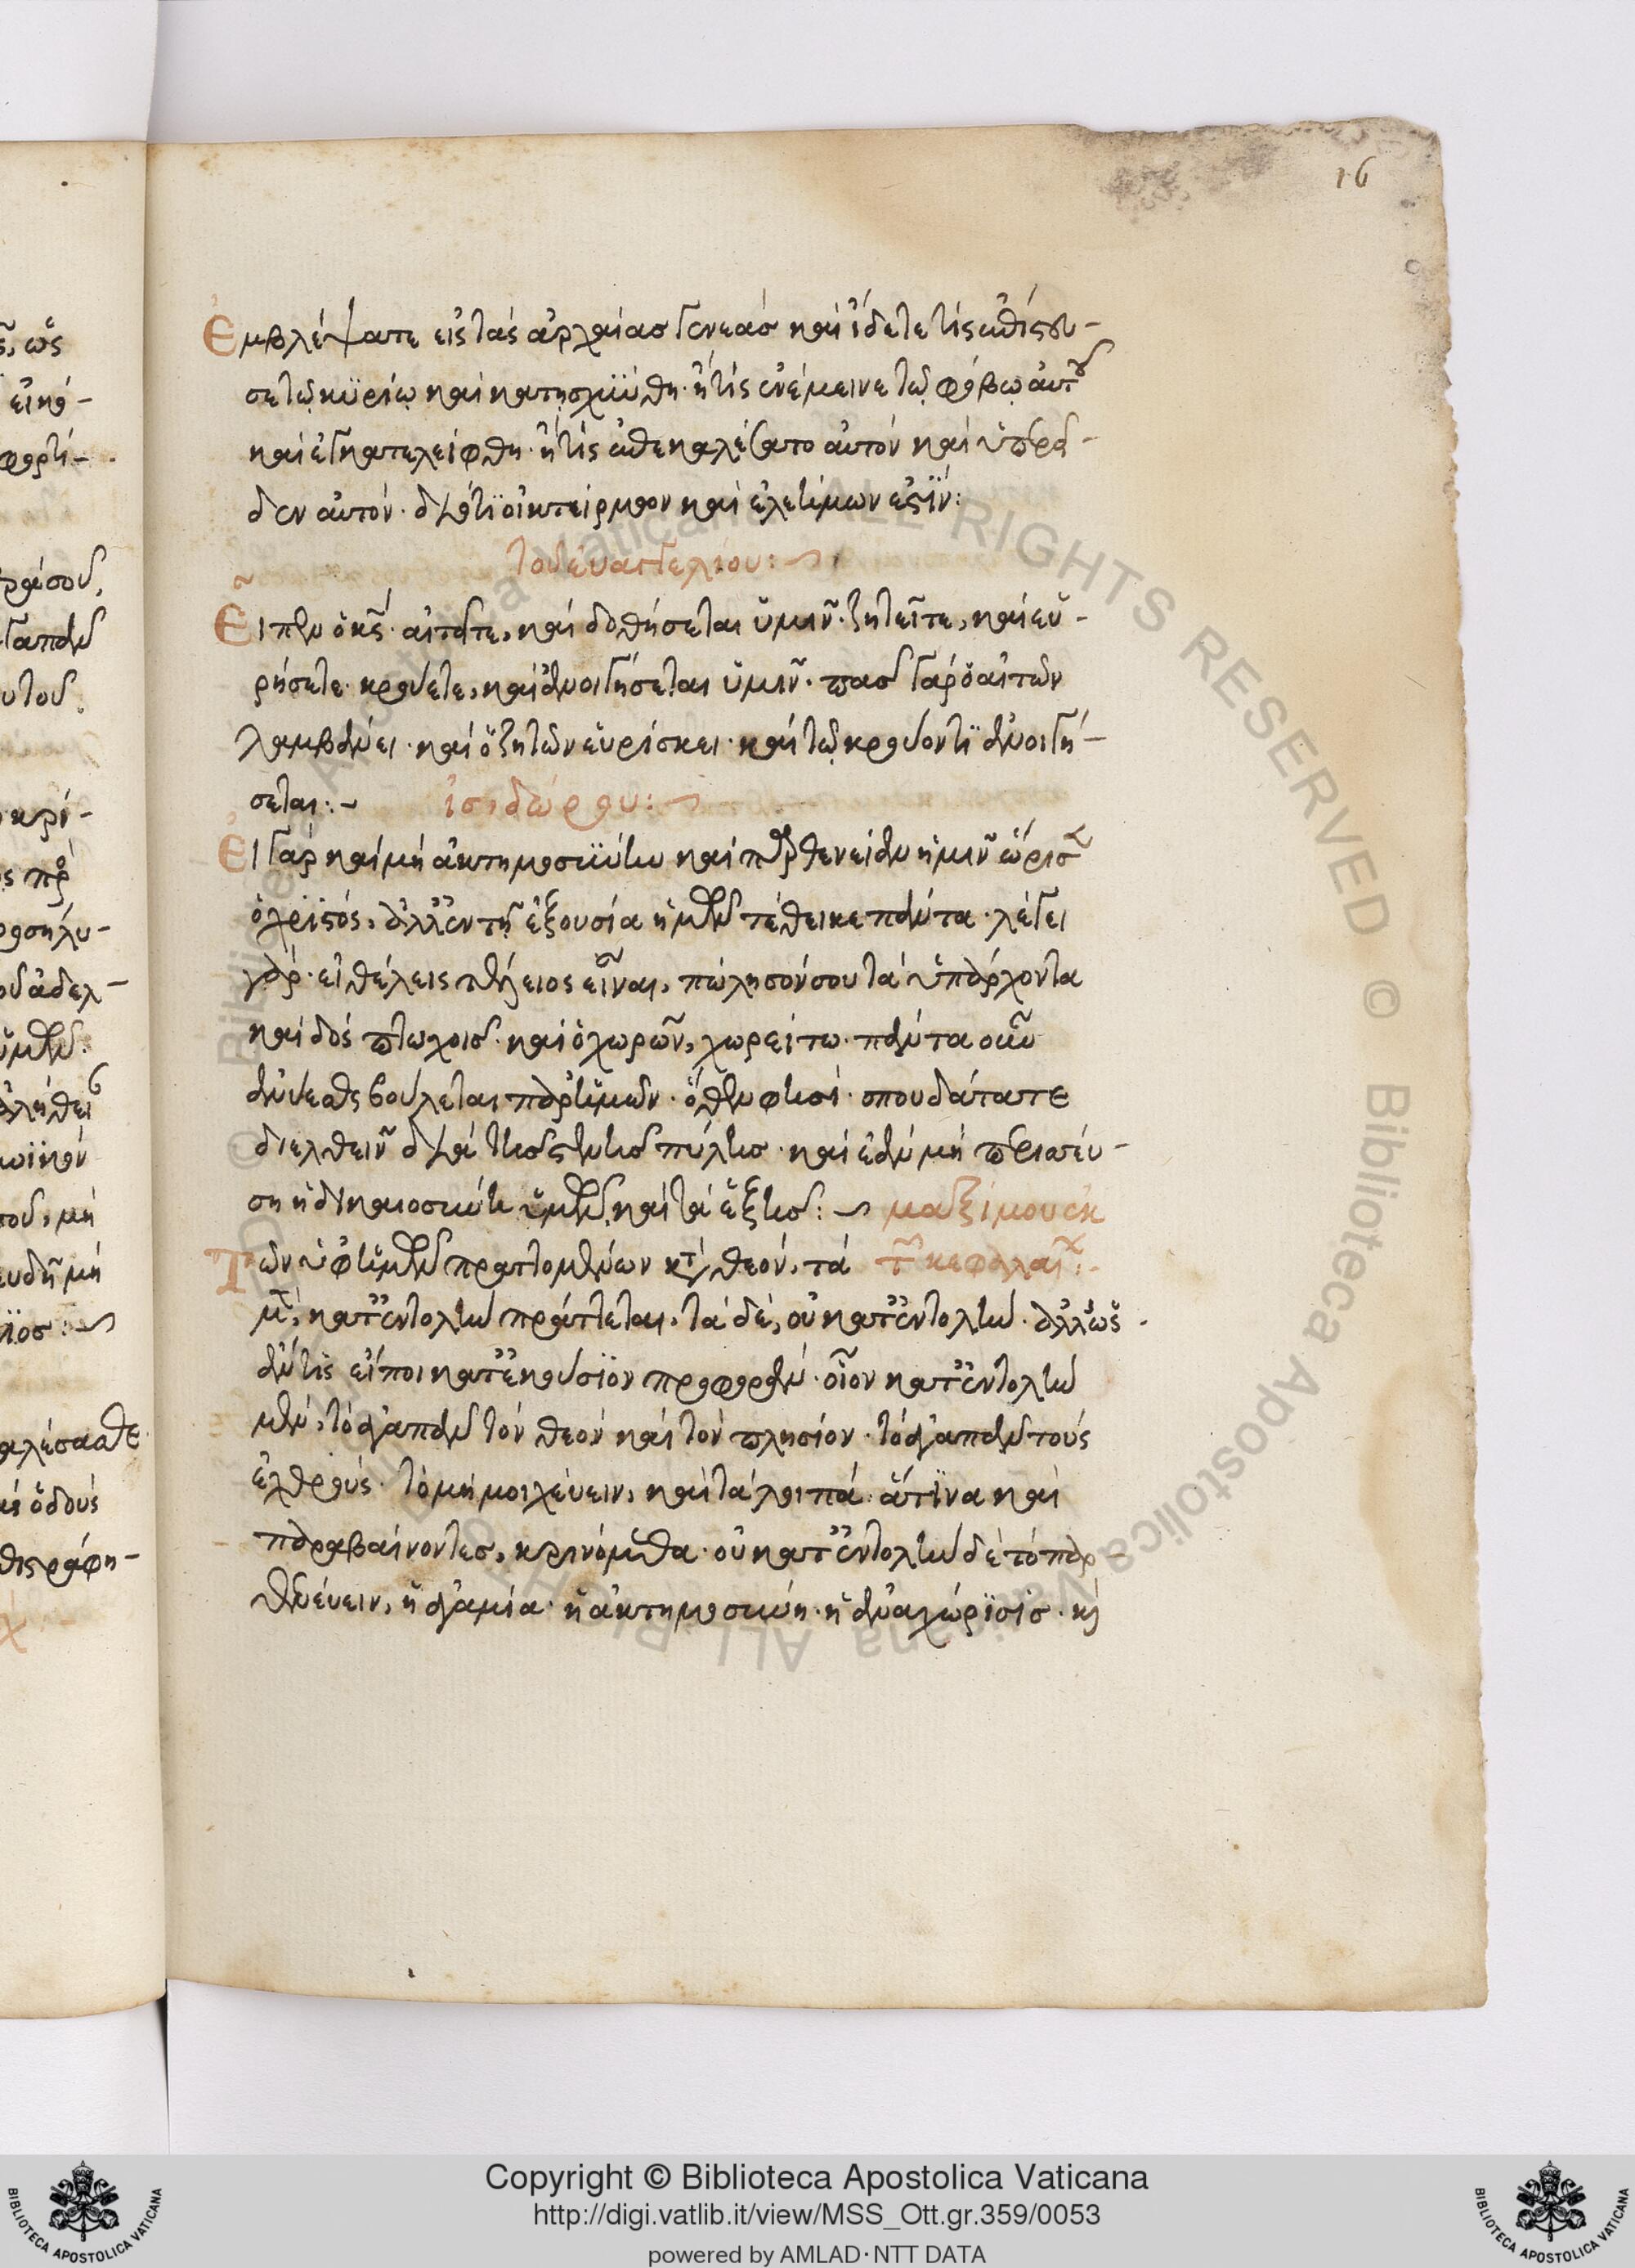 16
Ἐμβλέψατε εἰς τὰς ἀρχαίας γενεὰς καὶ ἴδετε τίς ἐπίστευ-
σε τῷ κυρίῳ καὶ κατησχύνθη· ἢ τίς ἐνέμεινε τῷ φόβῳ αὐτοῦ
καὶ ἐγκατελείφθη· ἢ τίς ἐπεκαλέσατο αὐτὸν καὶ ὑπερεῖ-
δεν αὐτόν· διότι οἰκτείρμον καὶ ἐλεήμων ἐστίν:
τοῦ εὐαγγελίου:
Εἶπεν ὁ κς· αἰτεῖτε, καὶ δοθήσεται ὑμῖν· ζητεῖτε, καὶ εὑ-
ρήσετε· κρούετε, καὶ ἀνοιγήσεται ὑμῖν· πᾶς γὰρ ὁ αἰτῶν
λαμβάνει· καὶ ὁ ζητῶν εὑρίσκει· καὶ τῷ κρούοντι ἀνοιγή-
σεται:- ἰσιδώρου:
Εἰ γὰρ καὶ μὴ ἀκτημοσύνην καὶ παρθενείαν ἡμῖν ὥρισεν
ὁ χριστός, ἀλλ' ἐν τῇ ἐξουσία ἡμῶν τέθεικε πάντα· λέγει
γάρ· εἰ θέλεις τέλειος εἶναι, πώλησόν σου τὰ ὑπάρχοντα
καὶ δὸς πτωχοῖς· καὶ ὁ χωρῶν, χωρείτω· πάντα οὖν
ἀνύεσθαι βούλεται παρ' ἡμῶν· ὅθεν φησί· σπουδάσατε
διελθεῖν διὰ τῆς στενῆς πύλης· καὶ ἐὰν μὴ περισσεύ-
ση ἡ δικαιοσύνη ὑμῶν, καὶ τὰ ἑξῆς: μαξίμου ἐκ
Τῶν ὑφ' ἡμῶν πραττομένων κατὰ θεόν, τὰ τῶν κεφαλαίων:-
μέν, κατ' ἐντολὴν πράττεται, τὰ δέ, οὐ κατ' ἐντολήν· ἀλλ' ὡς
ἄν τις εἴποι κατ' ἐκούσιον προσφοράν· οἷον κατ' ἐντολὴν
μέν, τὸ ἀγαπᾶν τὸν θεὸν καὶ τὸν πλησίον· τὸ ἀγαπᾶν τοὺς
ἐχθρούς· τὸ μὴ μοιχεύειν, καὶ τὰ λοιπά· ἅτινα καὶ
παραβαίνοντες, κρινόμεθα· οὐ κατ' ἐντολὴν δὲ τὸ παρ-
θενεύειν, ἡ ἀγαμία· ἡ ἀκτημοσύνη· ἡ ἀναχώρισις· καὶ
Copyright © Biblioteca Apostolica Vaticana
http://digi.vatlib.it/view/MSS_Ott.gr.359/0053
powered by AMLAD·NTT DATA
BIBLIOTECA APOSTOLICA VATICANA
BIBLIOTECA APOSTOLICA VATICANA